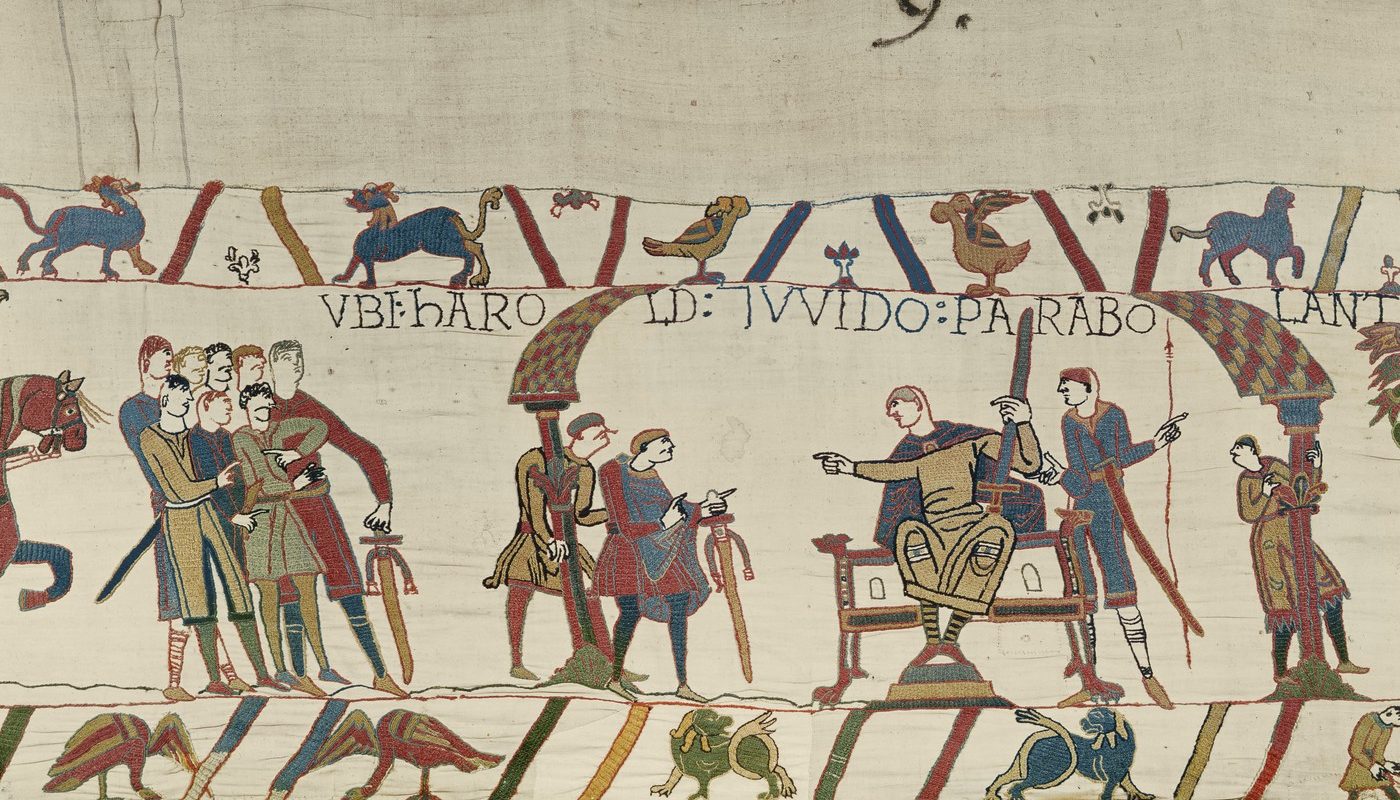 9.
VBI:hARO LD: ⁊ VVIDO: PA RABO LANT